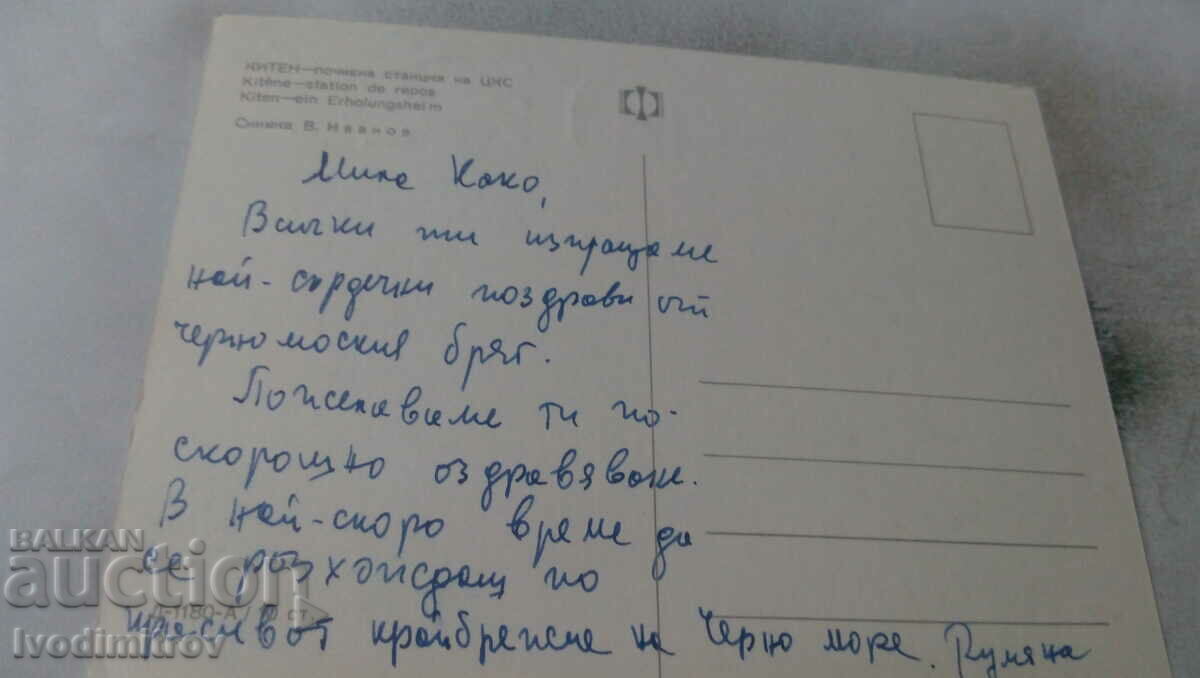 КИТЕН — почивна станция на ЦКС
Kitène — station de repos
Kiten — ein Erholungsheim
Снимка В. Иванов
Мила Како,
Всички ти изпращаме
най-сърдечни поздрави от
черномоския бряг.
Пожелаваме ти по-
скорошно оздравяване.
В най-скоро време да
се разхождаш по
крайбрежие на Черно море. Румяна
Д-1180-А / 10 ст.
BALKAN
auction
Ivodimitrov